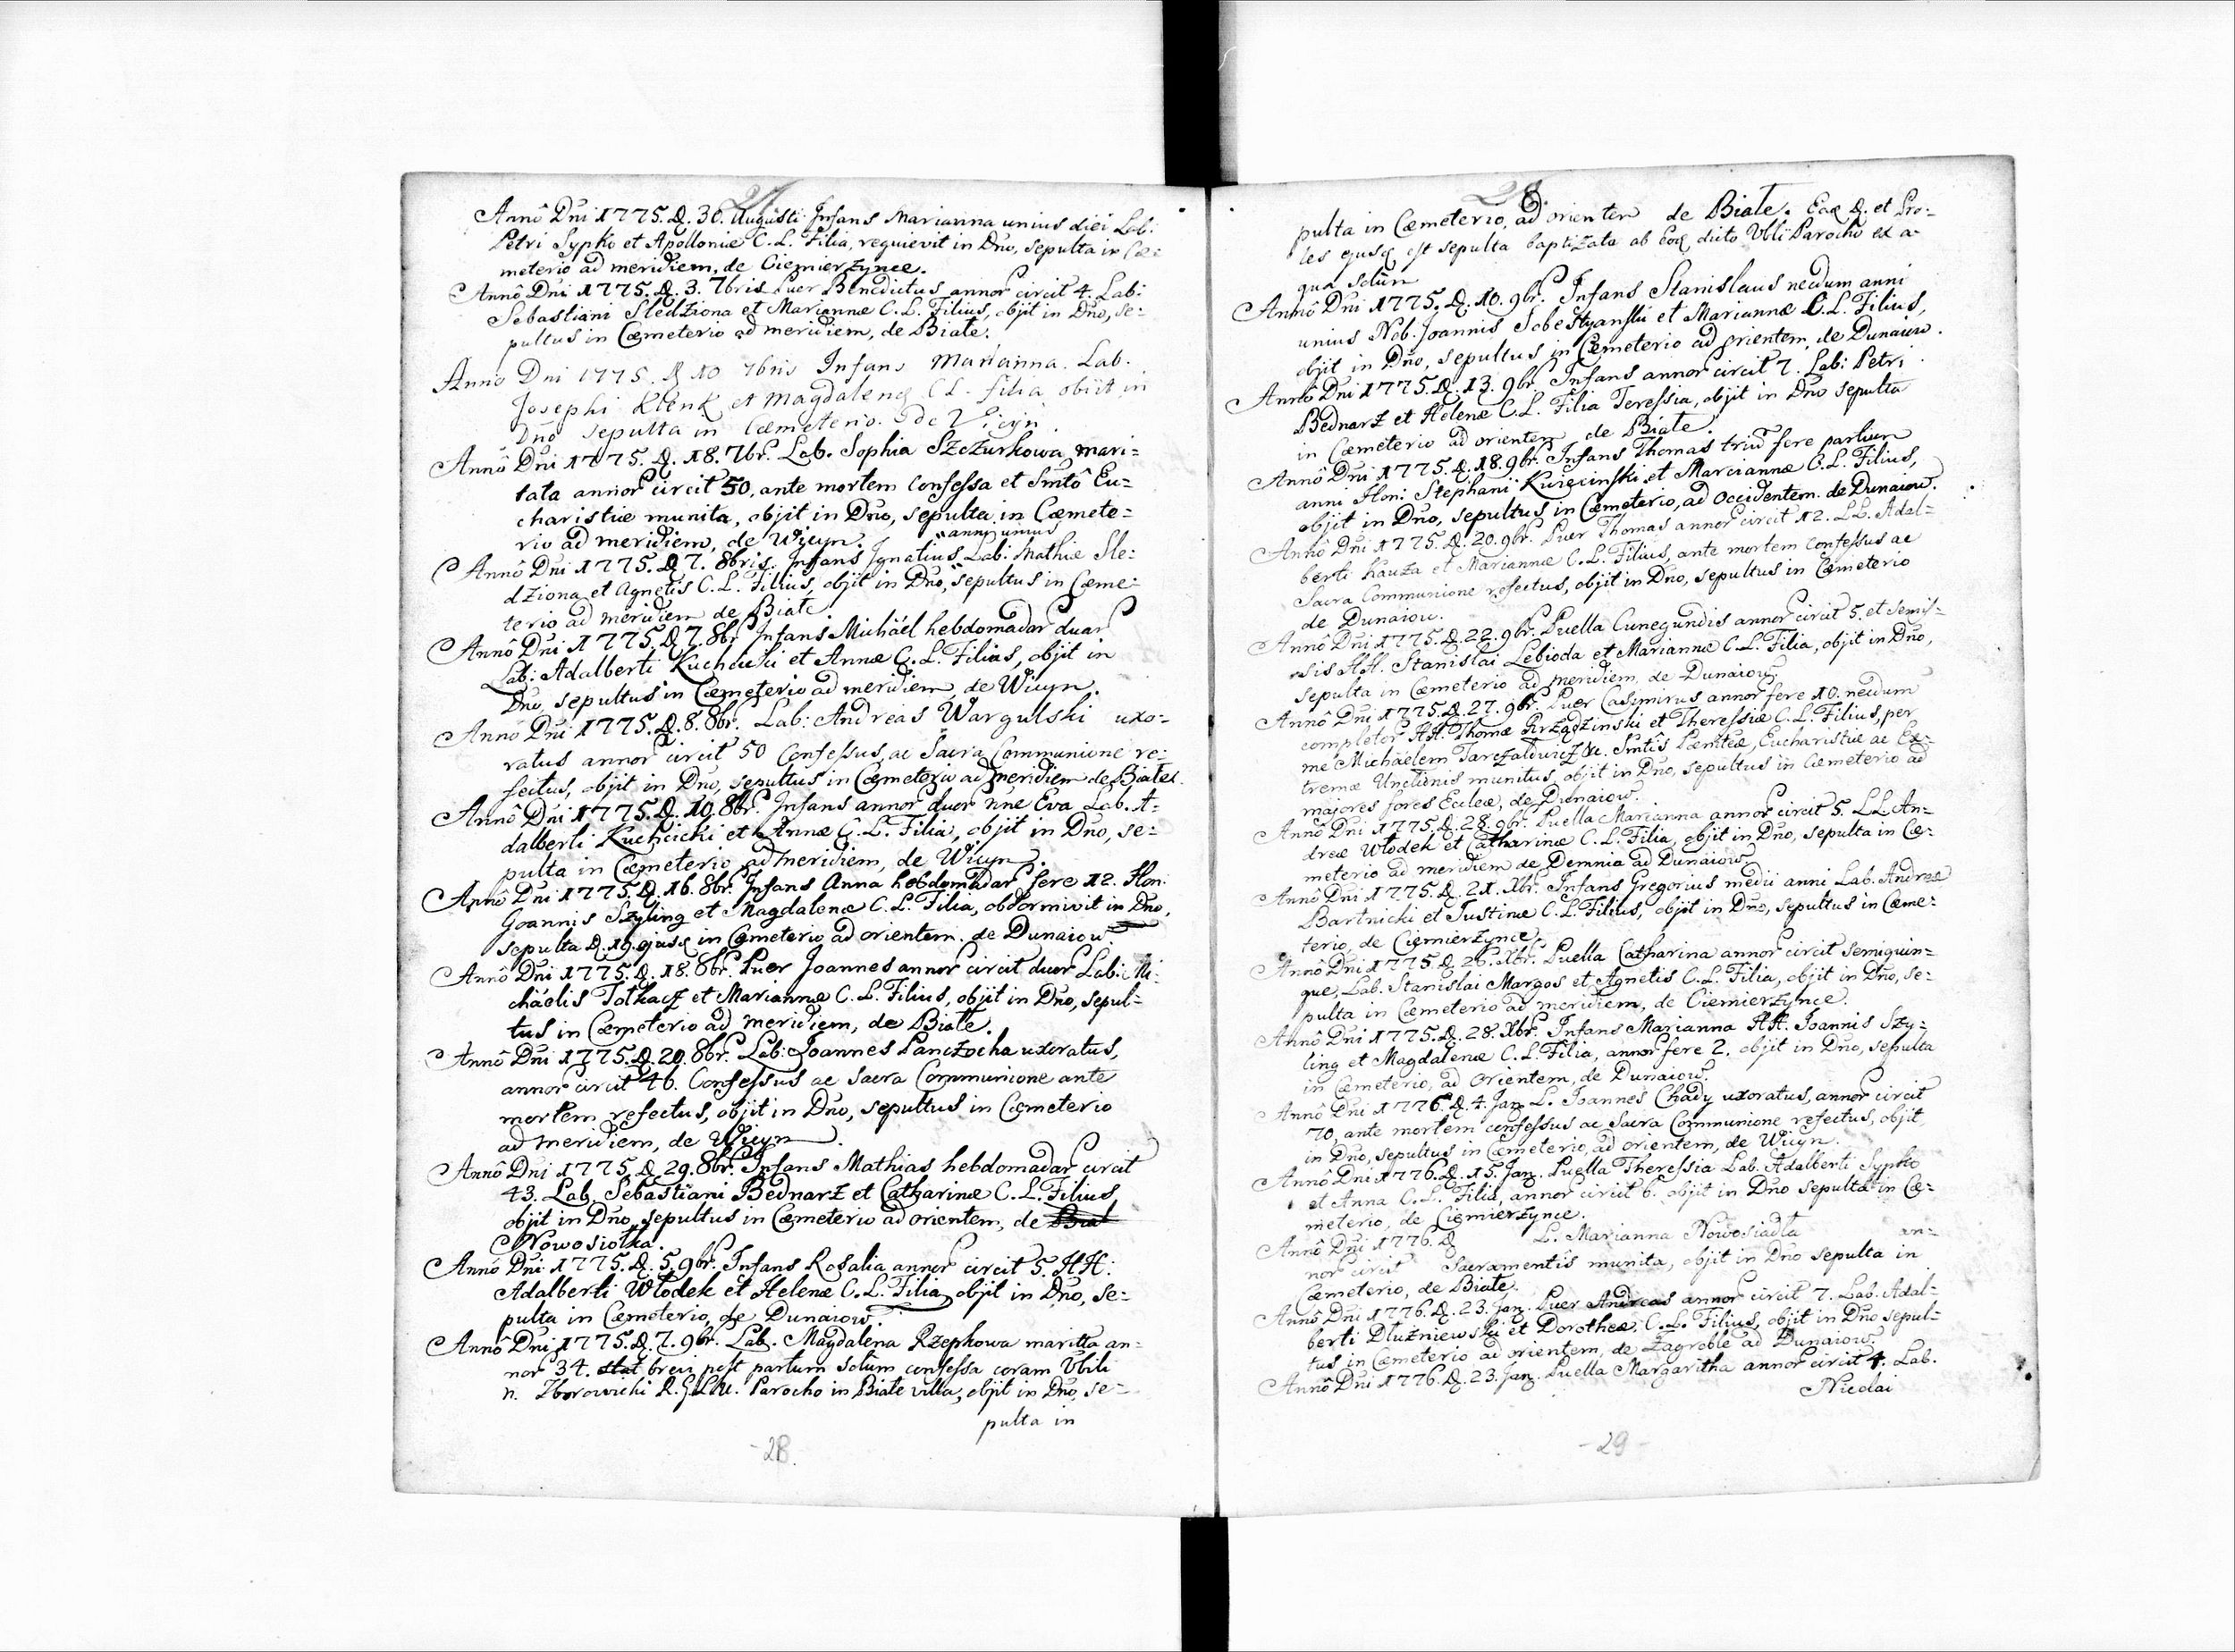 27
Annô Dni 1775. D. 30. Augusti Infans Marianna unius diei Lab:
Petri Sypko et Apolloniæ C.L. Filia, requievit in Dno, sepulta in Cæ=
meterio ad meridiem, de Ciemierzynce.
Annô Dni 1775. D. 3. 7bris Puer Benedictus annor circit 4. Lab:
Sebastiani Sledziona et Mariannæ C.L. Filius, objit in Dno, se=
pultus in Cæmeterio ad meridiem, de Białe.
Anno Dni 1775. D 10 7bris Infans Marianna. Lab.
Josephi Klenk et Magdalenæ CL. filia obiit in
Dno sepulta in Cæmeterio. de Vicyn.
Annô Dni 1775. D. 18. 7br. Lab. Sophia Szczurkowa mari=
tata annor circit 50, ante mortem confessa et Smtô Eu=
charistiæ munita, objit in Dno, sepulta in Cæmete=
rio ad meridiem, de Wicyn.
anni unius
Annô Dni 1775. D 7. 8bris. Infans Ignatius Lab: Mathiæ Sle=
dziona et Agnetis C.L. Filius, objit in Dno, sepultus in Cæme=
terio ad meridiem de Białe.
Annô Dni 1775. D 7. 8br Infans Michäel hebdomadar duar
Lab: Adalberti Kuchcicki et Annæ C.L. Filius, objit in
Dno, sepultus in Cæmeterio ad meridiem, de Wicyn.
Annô Dni 1775. D. 8. 8br. Lab: Andreas Wargulski uxo=
ratus annor circit 50 Confessus, ac Sacra Communione re=
fectus, objit in Dno, sepultus in Cæmeterio ad meridiem de Białe.
Annô Dni 1775. D. 10. 8br. Infans annor duor nne Eva Lab. A=
dalberti Kuchcicki et Annæ C.L. Filia, objit in Dno, se=
pulta in Cæmeterio ad meridiem, de Wicyn.
Annô Dni 1775. D. 16. 8br. Infans Anna hebdomadar fere 12. Hon:
Joannis Szyling et Magdalenæ C.L. Filia, obdormivit in Dno,
sepulta D. 19. ejusq in Cæmeterio ad orientem. de Dunaiow
Annô Dni 1775. D. 18. 8br. Puer Joannes annor circit duor Lab: Mi=
chäelis Tołkacz et Mariannæ C.L. Filius, objit in Dno, sepul=
tus in Cæmeterio ad meridiem, de Białe.
Annô Dni 1775. D. 20. 8br. Lab: Joannes Panczocha uxoratus,
annor circit 46. Confessus ac Sacra Communione ante
mortem refectus, objit in Dno, sepultus in Cæmeterio
ad meridiem, de Wicyn.
Annô Dni 1775. D. 29. 8br. Infans Mathias hebdomadar circit
43. Lab. Sebastiani Bednarz et Catharinæ C.L. Filius,
objit in Dno, sepultus in Cæmeterio ad orientem, de Bial
Nowosiołka.
Annô Dni 1775. D. 5. 9br. Infans Rosalia annor circit 5. HH:
Adalberti Włodek et Helenæ C.L. Filia, objit in Dno, se=
pulta in Cæmeterio, de Dunaiow.
Annô Dni 1775. D. 7. 9br. Lab. Magdalena Rzepkowa maritta an=
nor 34. brevi post partum solum confessa coram Vbili
n. Zborowicki Parocho in Białe villa, objit in Dno, se=
pulta in
-28.
28.
pulta in Cæmeterio, ad orientem de Białe. Eaq D. et Pro=
les ejusq est sepulta baptizata ab Eoq dicto Vbli Parocho ex a=
qua solum
Annô Dni 1775. D. 10. 9br. Infans Stanislaus necdum anni
unius Nob. Joannis Sobestyanski et Mariannæ C.L. Filius,
objit in Dno, sepultus in Cæmeterio ad orientem, de Dunaiow.
Annô Dni 1775. D. 13. 9br. Infans annor circit 7. Lab: Petri
Bednarz et Helenæ C.L. Filia Teressia, objit in Dno sepulta
in Cæmeterio ad orientem de Białe.
Annô Dni 1775. D. 18. 9br. Infans Thomas triu fere partium
anni Hon: Stephani Kwiecinski et Mariannæ C.L. Filius,
objit in Dno, sepultus in Cæmeterio, ad occidentem. de Dunaiow.
Annô Dni 1775. D. 20. 9br. Puer Thomas annor circit 12. LL. Adal=
berti Kauza et Mariannæ C.L. Filius, ante mortem confessus ac
Sacra Communione refectus, objit in Dno, sepultus in Cæmeterio
de Dunaiow.
Annô Dni 1775. D. 22. 9br. Puella Cunegundis annor circit 5. et semis=
sis HH. Stanislai Lebioda et Mariannæ C.L. Filia, objit in Dno,
sepulta in Cæmeterio ad meridiem, de Dunaiow.
Annô Dni 1775. D. 27. 9br. Puer Casimirus annor fere 10. necdum
completor HH. Thomæ Grządzinski et Theressiæ C.L. Filius, per
me Michäelem Tarczałowicz Smtis Pæniteæ, Eucharistiæ ac Ex=
tremæ Unctionis munitus, objit in Dno, sepultus in Cæmeterio ad
majores fores Ecclæ, de Dunaiow.
Annô Dni 1775. D. 28. 9br. Puella Marianna annor circit 5. LL. An=
dreæ Włodek et Catharinæ C.L. Filia, objit in Dno, sepulta in Cæ=
meterio ad meridiem de Demnia ad Dunaiow.
Annô Dni 1775. D. 21. Xbr. Infans Gregorius medii anni Lab. Andreæ
Bartnicki et Justinæ C.L. Filius, objit in Dno, sepultus in Cæme=
terio, de Ciemierzynce.
Annô Dni 1775. D. 26. Xbr. Puella Catharina annor circit semiquin=
que, Lab. Stanislai Margos et Agnetis C.L. Filia, objit in Dno, se=
pulta in Cæmeterio ad meridiem, de Ciemierzynce.
Annô Dni 1775. D. 28. Xbr. Infans Marianna HH. Joannis Szy=
ling et Magdalenæ C.L. Filia, annor fere 2. objit in Dno, sepulta
in Cæmeterio, ad Orientem, de Dunaiow.
Annô Dni 1776. D. 4. Jan. L. Joannes Chady uxoratus, annor circit
70, ante mortem confessus ac Sacra Communione refectus, objit
in Dno, sepultus in Cæmeterio, ad orientem, de Wicyn.
Annô Dni 1776. D. 15. Jan. Puella Theressia Lab. Adalberti Sypko
et Anna C.L. Filia, annor circit 6. objit in Dno sepulta in Cæ=
meterio, de Ciemierzynce.
Annô Dni 1776. D L. Marianna Nowosiadła an=
nor circit Sacramentis munita, objit in Dno sepulta in
Cæmeterio, de Białe.
Annô Dni 1776. D. 23. Jan. Puer Andreas annor circit 7. Lab. Adal=
berti Dłuźniewski et Dorotheæ, C.L. Filius, objit in Dno sepul=
tus in Cæmeterio ad orientem, de Zagroble ad Dunaiow.
Annô Dni 1776. D. 23. Jan. Puella Margaritha annor circit 4. Lab.
Nicolai
-29-